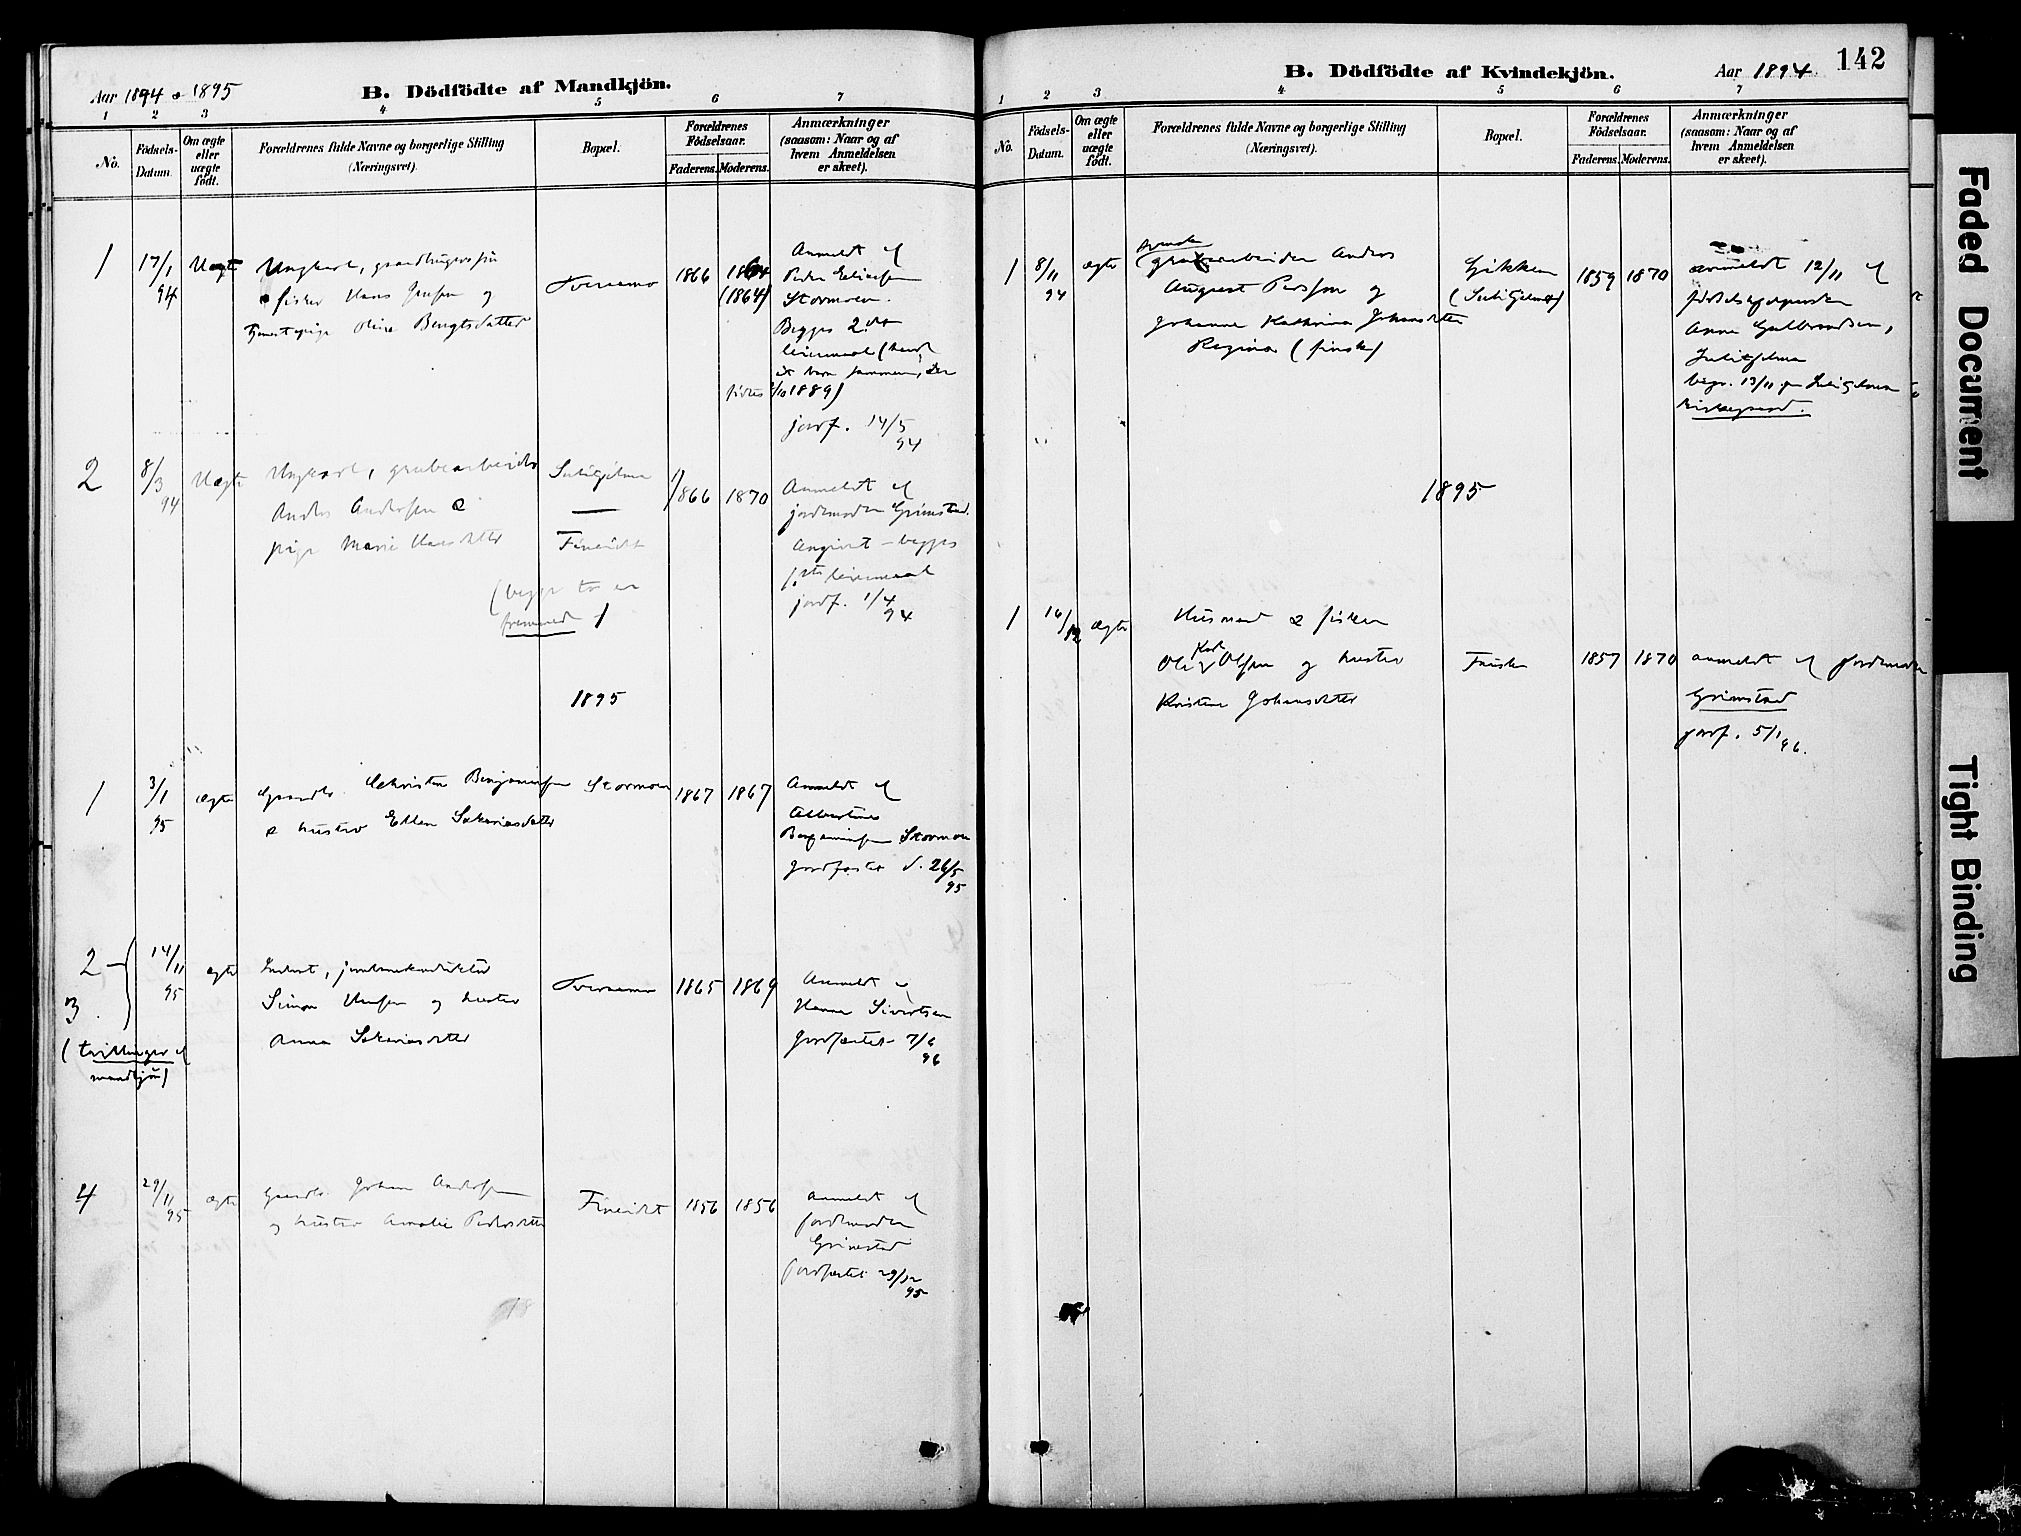 Aar 1894 & 1895
B. Dödfödte af Mandkjön.
1 2 3 4 5 6 7
No.
Födsels-Datum.
Om ægte eller uægte födt.
Forældrenes fulde Navne og borgerlige Stilling (Næringsvei).
Bopæl.
Forældrenes Födselsaar.
Faderens. Moderens.
Anmærkninger (saasom: Naar og af hvem Anmeldelsen er skeet).
1 17/1 94 Uægte
Ungkarl, gaardbrugersøn
& fisker Hans Jensen og
Tjenestepige Oline Bengtsdatter
Tveraamo
1866 1864
(1864)
Anmeldt af
Peder Eliasen
Stormoen.
Begges 2det
leiermaal (havt
et barn sammen, der
fødtes 1/10 1889)
jordf. 14/5 94
2 8/3 94 Uægte
Ungkarl, grubearbeider
Anders Andersen &
pige Marie Hansdatter
Sulitjelma
—
Fineidet
(begge to er
fremmed)
1866 1870
Anmeldt af
jordemoder Grimstad.
Angivet – begges
1ste leiermaal
jordf. 1/4 94
1895
1 3/1 95 ægte
Gaardbr. Sakrisken Benjaminsen
& hustro Ellen Sakariasdatter
Stormoen
1867 1867
Anmeldt af
Albertine
Benjaminsen Stormoen
jordfæstet d. 26/5 95
2 – 3
14/11 95
ægte
(tvillinger af
mandkjøn)
Simon Hansen og hustro
Anna Sakariasdatter
Tveraamo
1865 1869
Anmeldt af
Hanna Sivertsen
Jordfæstet 7/6 96
4 29/11 95 ægte
Gaardbr. Johan Andersen
og hustro Amalie Pedersdatter
Fineidet
1856 1856
Anmeldt af
jordemoder
Grimstad
jordfæstet 29/12 95
142
B. Dödfödte af Kvindekjön.
Aar 1894.
1 2 3 4 5 6 7
No.
Födsels-Datum.
Om ægte eller uægte födt.
Forældrenes fulde Navne og borgerlige Stilling (Næringsvei).
Bopæl.
Forældrenes Födselsaar.
Faderens. Moderens.
Anmærkninger (saasom: Naar og af hvem Anmeldelsen er skeet).
1 8/11 94 ægte
svensk
grubearbeider Anders
August Persson og
Johanne Kathrina Johansdatter
Regina (finsk)
Gikken
(Sulitjelma)
1859 1870
anmeldt 12/11 af
fødselshjælpersken
Anna Gulbrandsen,
Sulitjelma
begr. 13/11 paa Sulitjelma
kirkegaard.
1895
1 16/12 ægte
Husmand & fisker
Ole Kar. Olsen og hustro
Kristine Johansdatter
Fauske
1857 1870
anmeldt af jordemoder
Grimstad
jordf. 5/1 96.
Faded Document
Tight Binding